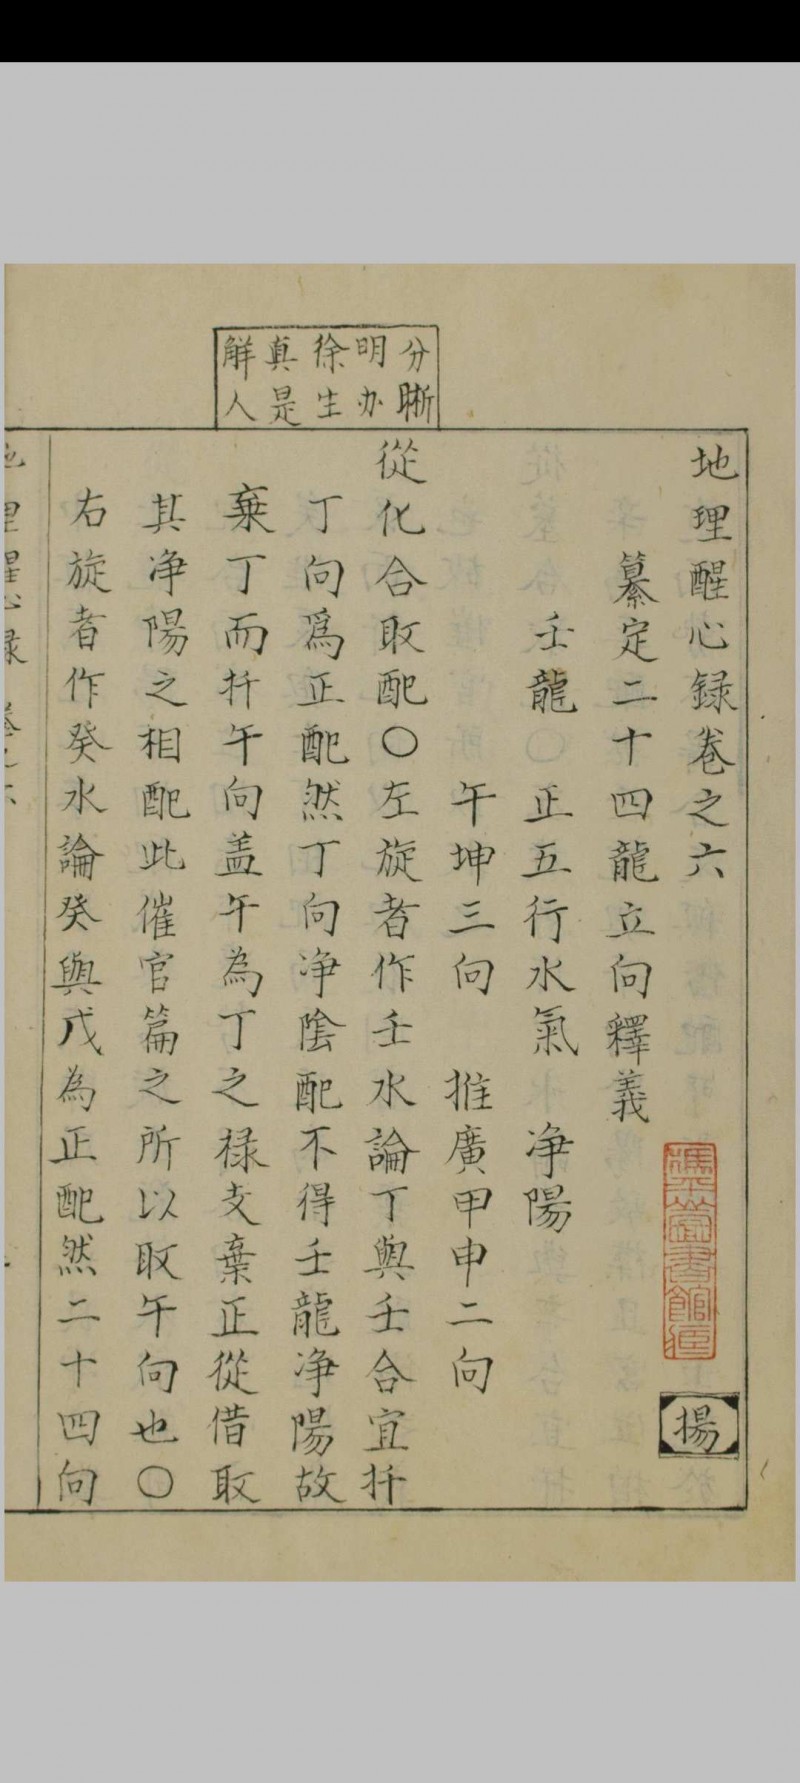 地理醒心録卷之六
纂定二十四龍立向釋義
壬龍 正五行水氣 净陽
午坤三向 推廣甲申二向
從化合取配〇左旋者作壬水論丁與壬合宜扦
丁向爲正配然丁向净陰配不得壬龍净陽故
棄丁而扦午向盖午為丁之禄支棄正從借取
其净陽之相配此催官篇之所以取午向也〇
右旋者作癸水論癸與戊為正配然二十四向
分晰
明办
徐生
真是
解人
揚
地理醒心録 卷之六